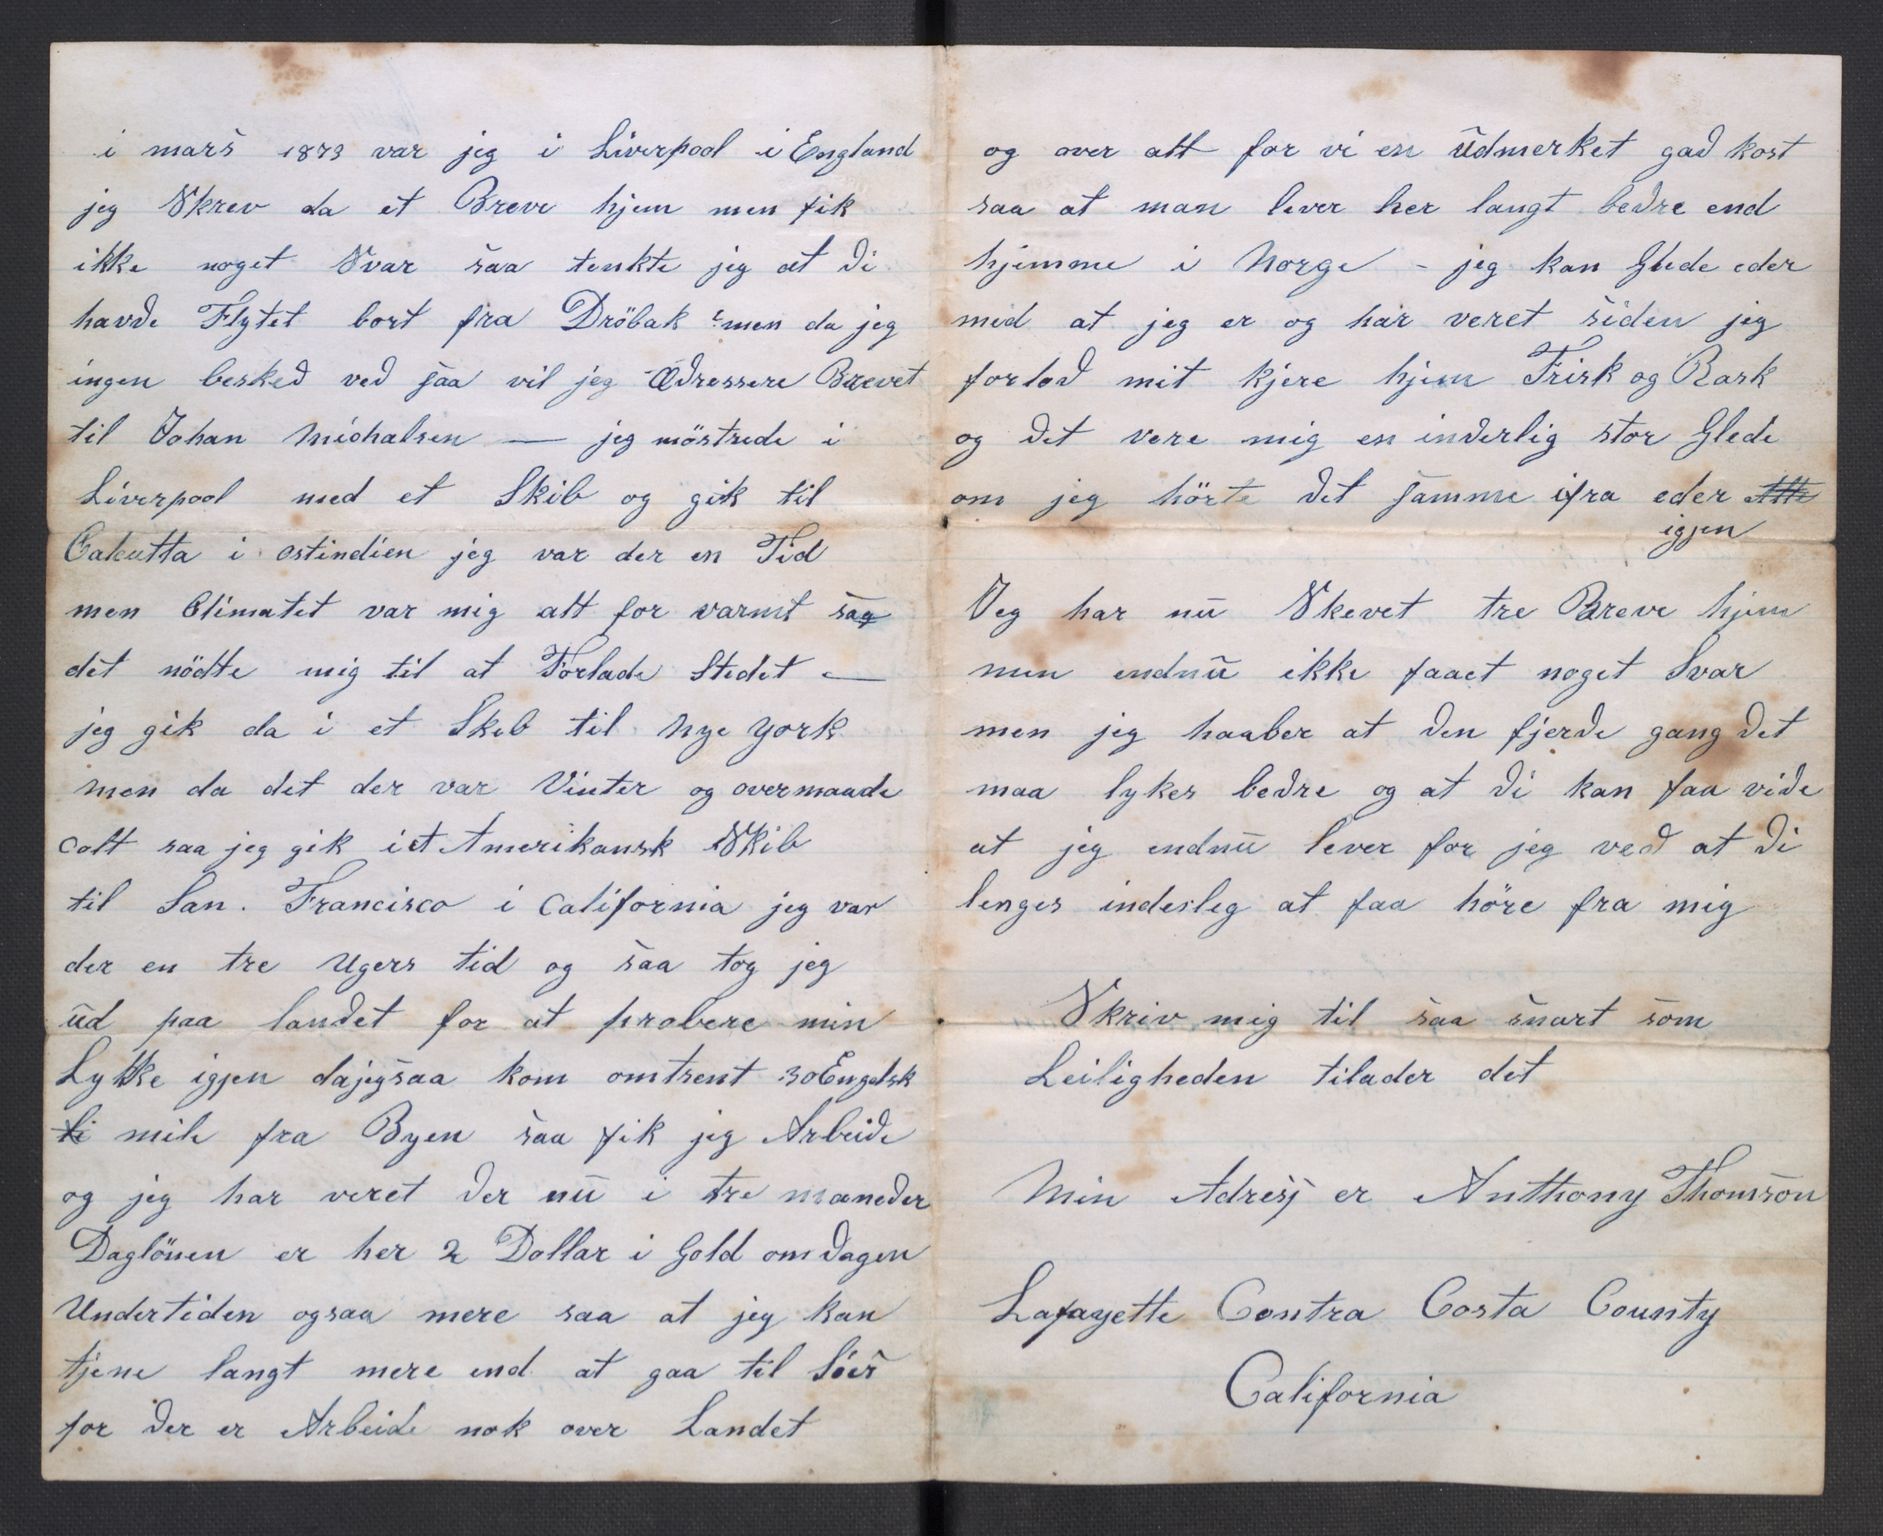 i mars 1873 var jeg i Liverpool i England
jeg Skrev da et Breve hjem men fik
ikke noget Svar saa tenkte jeg at di
havde Flytet bort fra Dröbak men da jeg
ingen besked ved saa vil jeg Adressere Brevet
til Johan Michalsen — jeg mönstrede i
Liverpool med et Skib og gik til
Calcutta i ostindien jeg var der en Tid
men Climatet var mig alt for varmt saa
det nödte mig til at Forlade Stedet —
jeg gik da i et Skib til Nye York
men da det der var Vinter og overmaade
colt saa jeg gik i et Amerikansk Skib
til San. Francisco i California jeg var
der en tre Ugers tid og saa tog jeg
ūd paa landet for at probere min
Lykke igjen da jeg saa kom omtrent 30 Engelsk
mile fra Byen saa fik jeg Arbeide
og jeg har veret der nū i tre maneder
Daglönen er her 2 Dollar i Gold om dagen
Undertiden ogsaa mere saa at jeg kan
tjene langt mere end at gaa til Söes
for der er Arbeide nok over Landet
og over alt for vi en ūdmerket god kost
saa at man lever her langt bedre end
hjemme i Norge - jeg kan Glede eder
med at jeg er og har veret siden jeg
forlod mit kjere hjem Frisk og Rask
og det vere mig en inderlig stor Glede
om jeg hörte det samme ifra eder
igjen
Jeg har nū Skevet tre Breve hjem
men endnū ikke faaet noget Svar
men jeg haaber at den fjerde gang det
maa lykes bedre og at di kan faa vide
at jeg endnū lever for jeg ved at di
lenges indesleg at faa höre fra mig
Skriv mig til saa snart som
Leiligheden tilader det
Min Adress er Anthony Thomson
Lafayette Contra Costa County
California